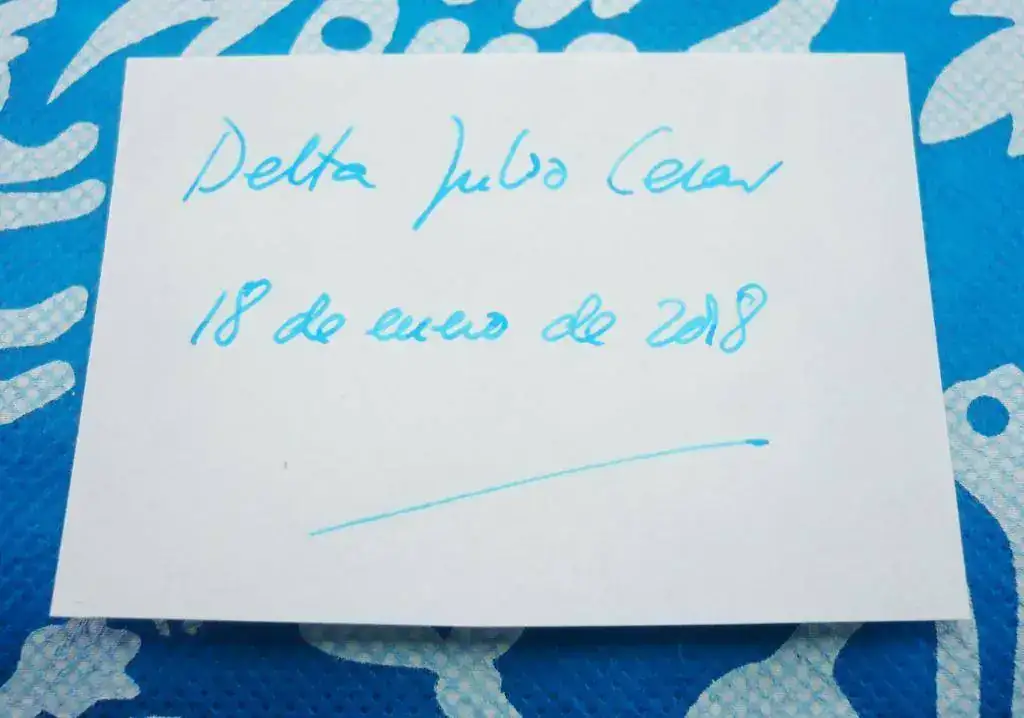 Delta Julio Cesar
18 de enero de 2018